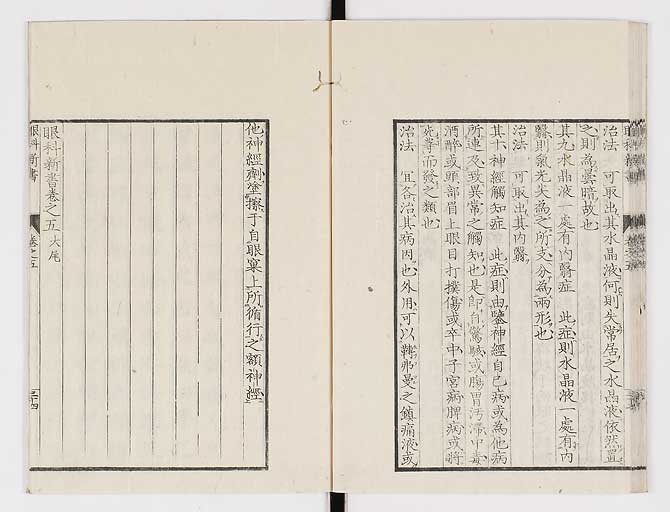 治法 可取出其水晶液何則失常居之水晶液依然置
之則為雲暗故也
其九水晶液一處有內翳症 此症則水晶液一處有內
翳則氣光尖為之所支分為兩形也
治法 可取出其內翳
其十神經觸知症 此症則由鑒神經自己病或為他病
所連及致異常之觸知也是即自驚駭或腸胃汚滯中毒
酒醉或頭部眉上眼目打撲傷或卒中子宮病脾病或將
死等而發之類也
治法 宜各治其病因也外用可以鞾弗曼之鎮痛液或
眼科新書
卷之五
他神經劑塗擦于自眼窠上所循行之額神經
眼科新書卷之五 大尾
眼科新書
卷之五
三十四